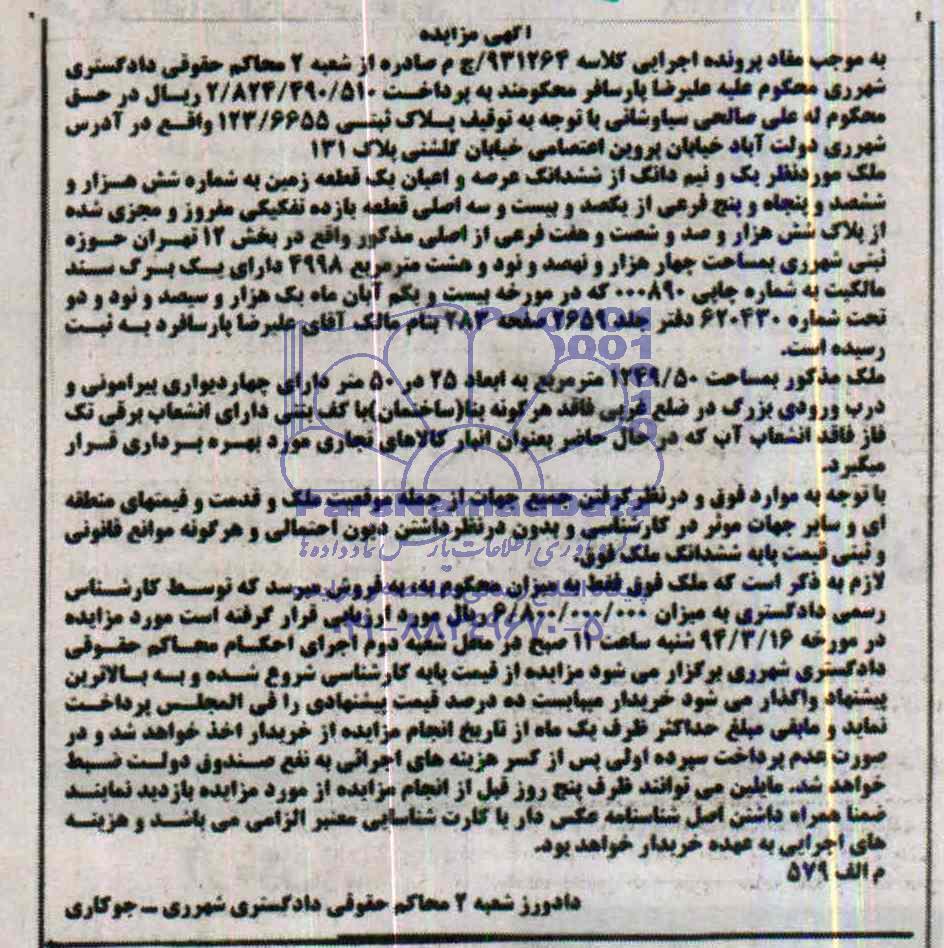 آگهی مزایده
به موجب مفاد پرونده اجرایی کلاسه ۹۳۱۲۶۴/ج م صادره از شعبه ۲ محاکم حقوقی دادگستری
شهرری محکوم علیه علیرضا پارسافر محکومند به پرداخت ۲/۸۲۴/۴۹۰/۵۱۰ ریال در حق
محکوم له علی صالحی سیاوشانی با توجه به توقیف پلاک ثبتی ۱۲۳/۶۶۵۵ واقع در آدرس
شهرری دولت آباد خیابان پروین اعتصامی خیابان گلشنی پلاک ۱۳۱
ملک موردنظر یک و نیم دانگ از ششدانگ عرصه و اعیان یک قطعه زمین به شماره شش هزار و
ششصد و پنجاه و پنج فرعی از یکصد و بیست و سه اصلی قطعه یازده تفکیکی مفروز و مجزی شده
از پلاک شش هزار و صد و شصت و هفت فرعی از اصلی مذکور واقع در بخش ۱۲ تهران حوزه
ثبتی شهرری بمساحت چهار هزار و نهصد و نود و هشت مترمربع ۴۹۹۸ دارای یک برگ سند
مالکیت به شماره چاپی ۰۰۰۸۹۰ که در مورخه بیست و یکم آبان ماه یک هزار و سیصد و نود و دو
تحت شماره ۶۲۰۴۳۰ دفتر جلد ۲۶۵۹ صفحه ۴۸۳ بنام مالک آقای علیرضا پارسافرد به ثبت
رسیده است.
ملک مذکور بمساحت ۱۲۴۹/۵۰ مترمربع به ابعاد ۲۵ در ۵۰ متر دارای چهاردیواری پیرامونی و
درب ورودی بزرگ در ضلع غربی فاقد هرگونه بنا(ساختمان)با کف بتنی دارای انشعاب برقی تک
فاز فاقد انشعاب آب که در حال حاضر بعنوان انبار کالاهای تجاری مورد بهره برداری قرار
میگیرد.
با توجه به موارد فوق و درنظرگرفتن جمیع جهات از جمله موقعیت ملک و قدمت و قیمتهای منطقه
ای و سایر جهات موثر در کارشناسی و بدون درنظرداشتن دیون احتمالی و هرگونه موانع قانونی
و ثبتی قیمت پایه ششدانگ ملک فوق.
لازم به ذکر است که ملک فوق فقط به میزان محکوم به، به فروش میرسد که توسط کارشناس
رسمی دادگستری به میزان ۶/۸۰۰/۰۰۰/۰۰۰ ریال مورد ارزیابی قرار گرفته است مورد مزایده
در مورخه ۹۴/۳/۱۶ شنبه ساعت ۱۱ صبح در محل شعبه دوم اجرای احکام محاکم حقوقی
دادگستری شهرری برگزار می شود مزایده از قیمت پایه کارشناسی شروع شده و به بالاترین
پیشنهاد واگذار می شود خریدار میبایست ده درصد قیمت پیشنهادی را فی المجلس پرداخت
نماید و مابقی مبلغ حداکثر ظرف یک ماه از تاریخ انجام مزایده از خریدار اخذ خواهد شد و در
صورت عدم پرداخت سپرده اولی پس از کسر هزینه های اجرائی به نفع صندوق دولت ضبط
خواهد شد. مایلین می توانند ظرف پنج روز قبل از انجام مزایده از مورد مزایده بازدید نمایند
ضمنا همراه داشتن اصل شناسنامه عکس دار یا کارت شناسایی معتبر الزامی می باشد و هزینه
های اجرایی به عهده خریدار خواهد بود.
م الف ۵۷۹
دادورز شعبه ۲ محاکم حقوقی دادگستری شهرری ــ جوکاری
ParsNamadData
۰۲۱-۸۸۳۴۹۶۷۰-۵